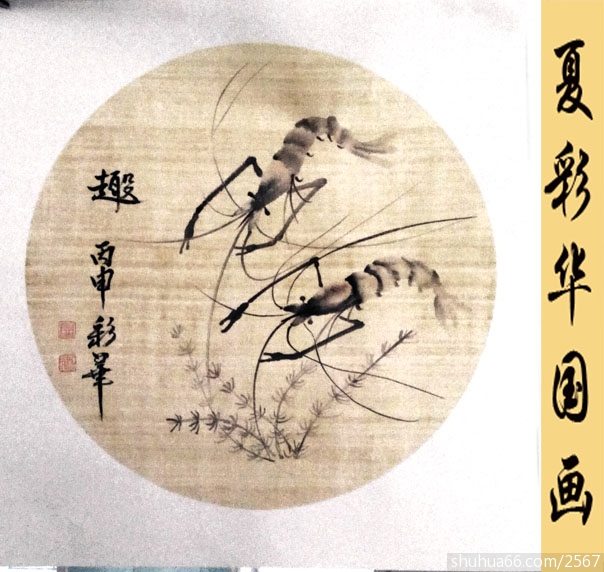 趣
丙申 彩華
夏彩华国画
shuhua66.com/2567